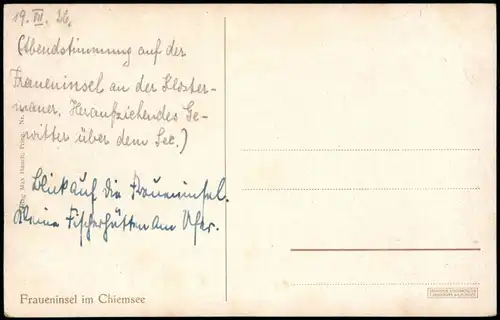 19. VII. 26.
(Abendstimmung auf der
Fraueninsel an der Kloster-
mauer. Heraufziehendes Ge-
witter über dem See.)
Blick auf die Fraueninsel.
Kleine Fischerhütten am Ufer.
Fraueninsel im Chiemsee